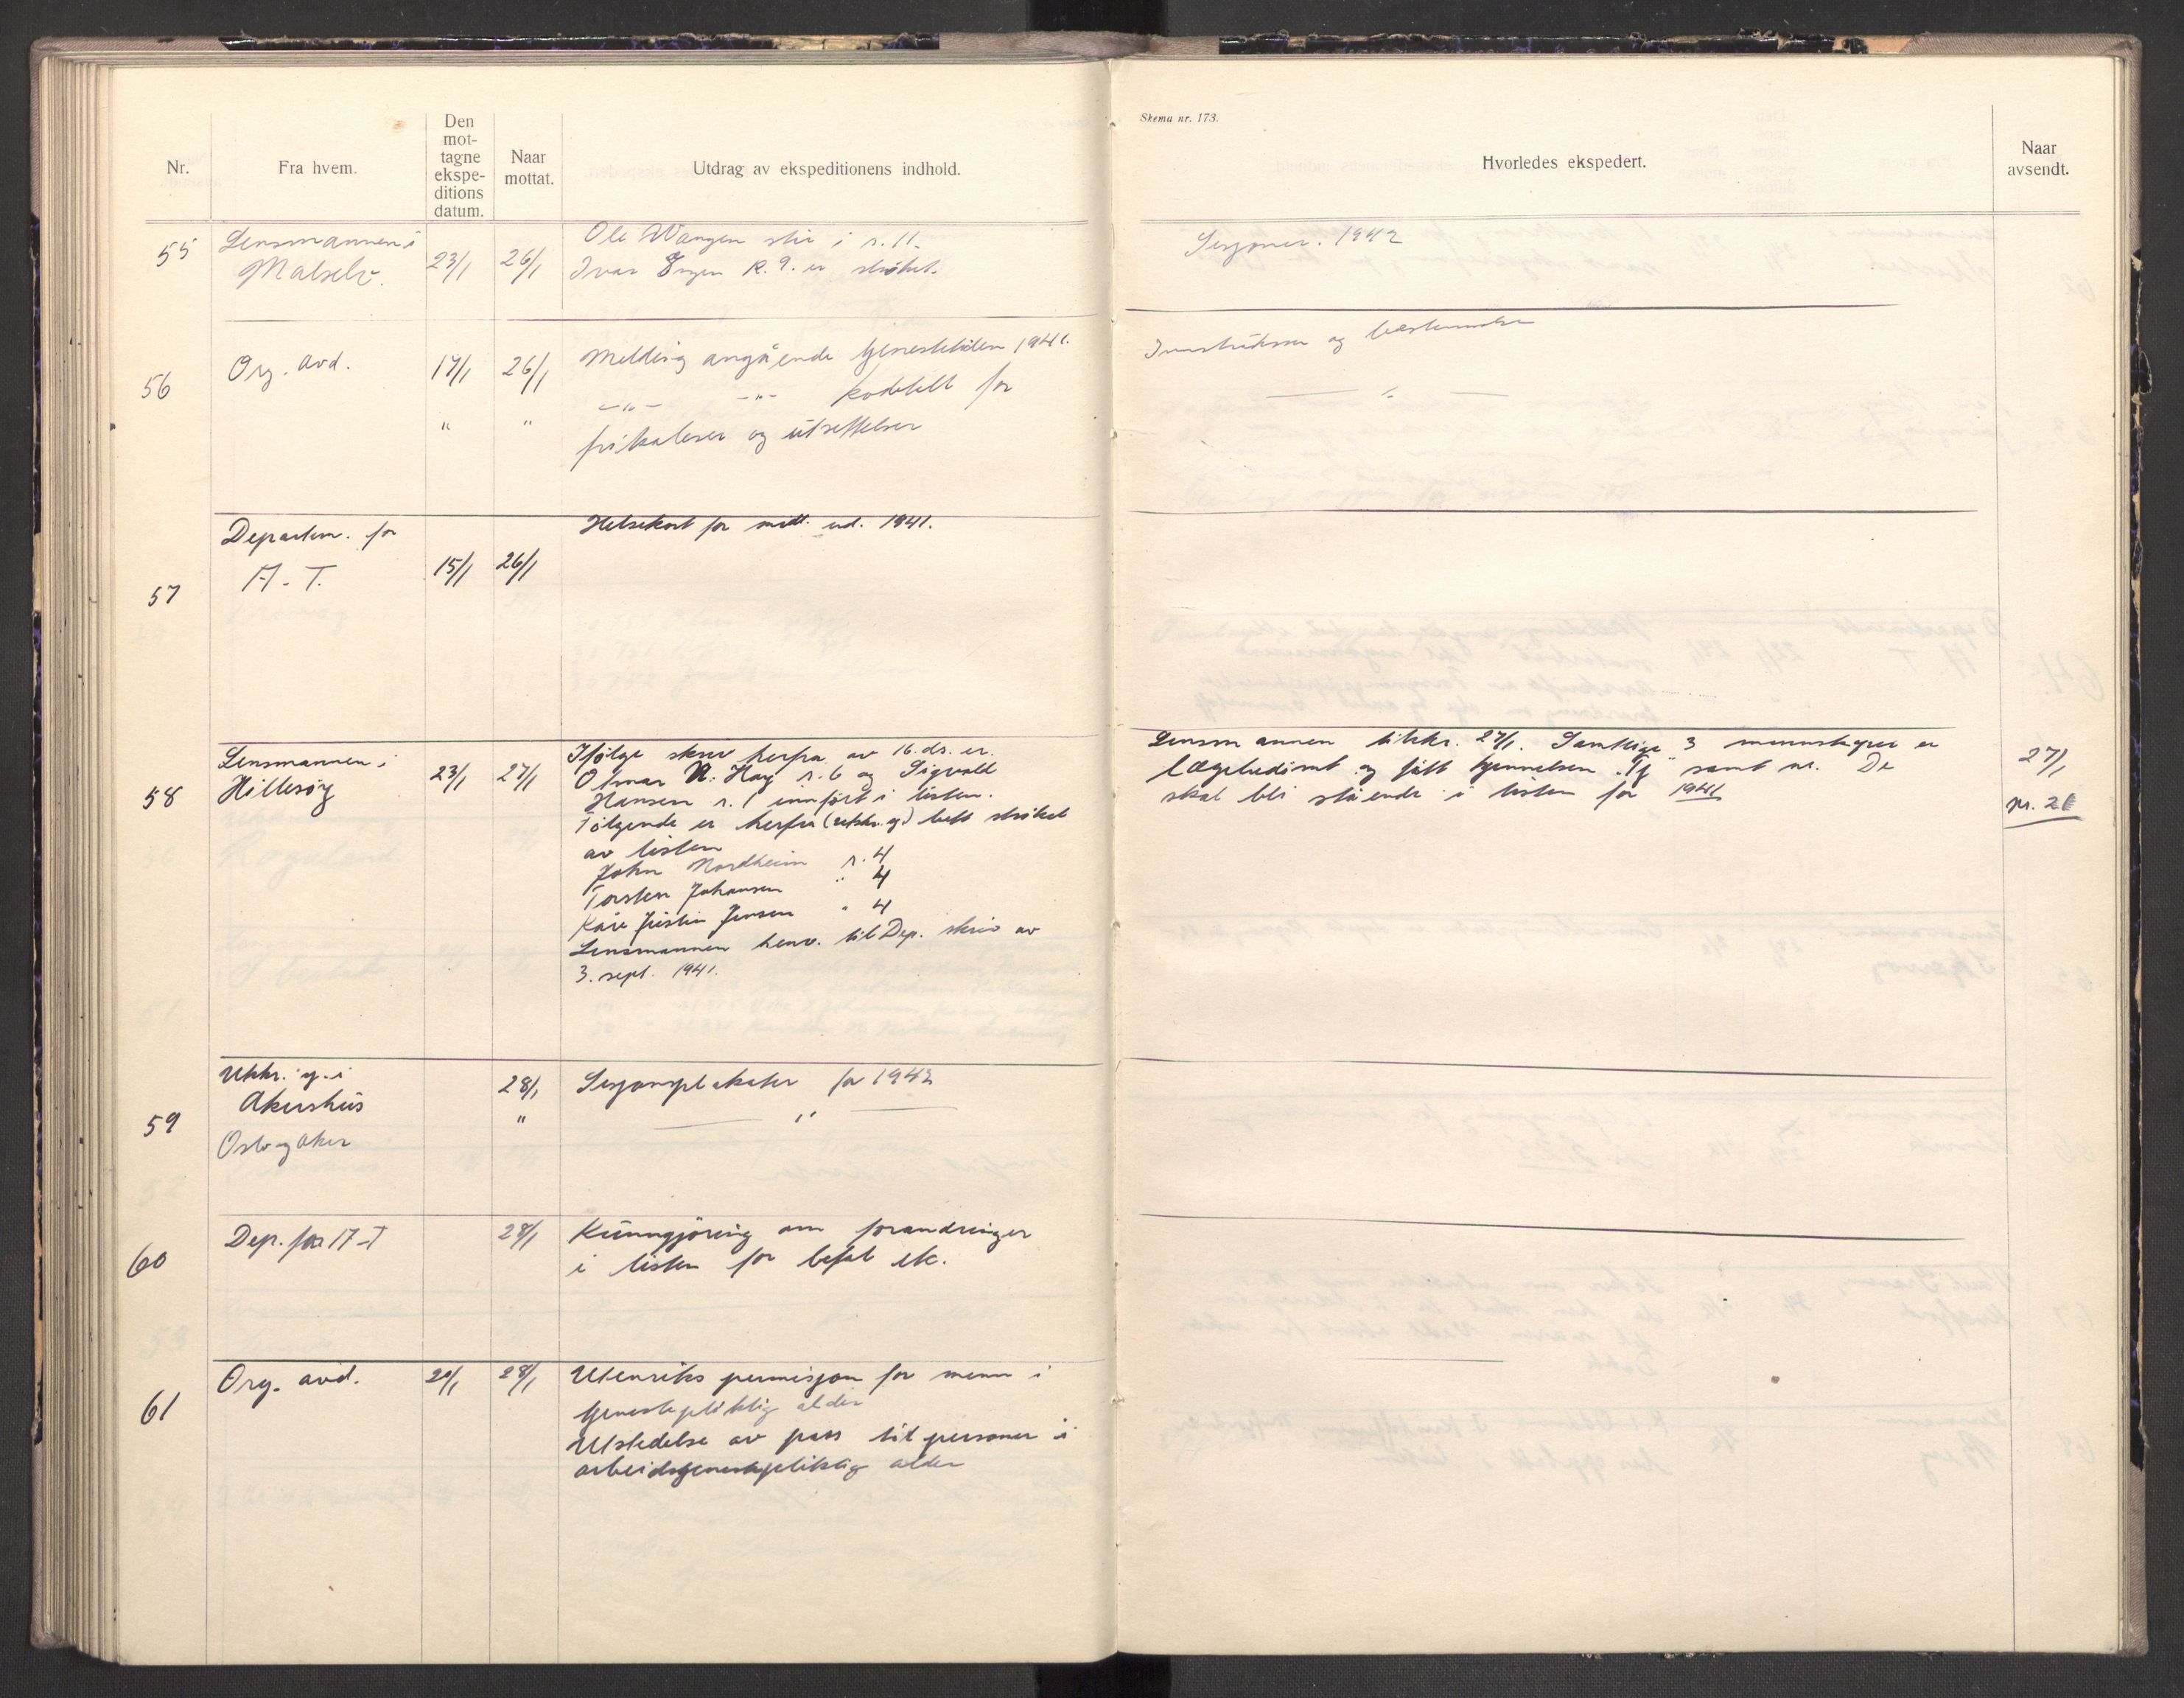 Nr.
Fra hvem.
Den
mot-
tagne
ekspe-
ditions
datum.
Naar
mottat.
Utdrag av ekspeditionens indhold.
Skema nr. 173.
Hvorledes ekspedert.
Naar
avsendt.
55
Lensmannen i
Målselv.
23/1
26/1
Ole Wangen står i r. 11.
Ivar Engen R. 9. er strøket.
Sesjoner. 1942
56
Org. avd.
17/1
26/1
Melding angående tjenestetiden 1941.
-"- -"- for
"
"
og utsettelser
Instrukser og bestemmelse
— " —
57
Departem. for
A-T.
15/1
26/1
Helsekort for 1941.
58
Lensmannen i
Hillesøy
23/1
27/1
Ifølge skriv herfra av 16. ds. er
Otmar N. Hay r. 6 og Sigvald
Hansen r. 1 innført i listen.
Følgende er herfra (utskr. sj) bett strøket
av listen
John Nordheim r. 4
Torsten Johansen " 4
Kåre Justin Jensen " 4
Lensmannen henv. til Dep. skriv av
3. sept. 1941.
Lensmannen tilskr. 27/1. Samtlige 3 er
lægebedømt og fått kjennelsen "Tj" samt nr. De
skal bli stående i listen for 1941
27/1
nr. 21
59
Utskr. sj. i
Akershus
Oslo og Aker
28/1
"
Sesjonsplakater for 1942
— " —
60
Dep. for A-T
28/1
Kunngjøring om forandringer
i listen for befal etc.
61
Org. avd.
20/1
28/1
Utenriks permisjon for menn i
tjenestepliktig alder
Utstedelse av pass til personer i
arbeidstjenestepliktig alder